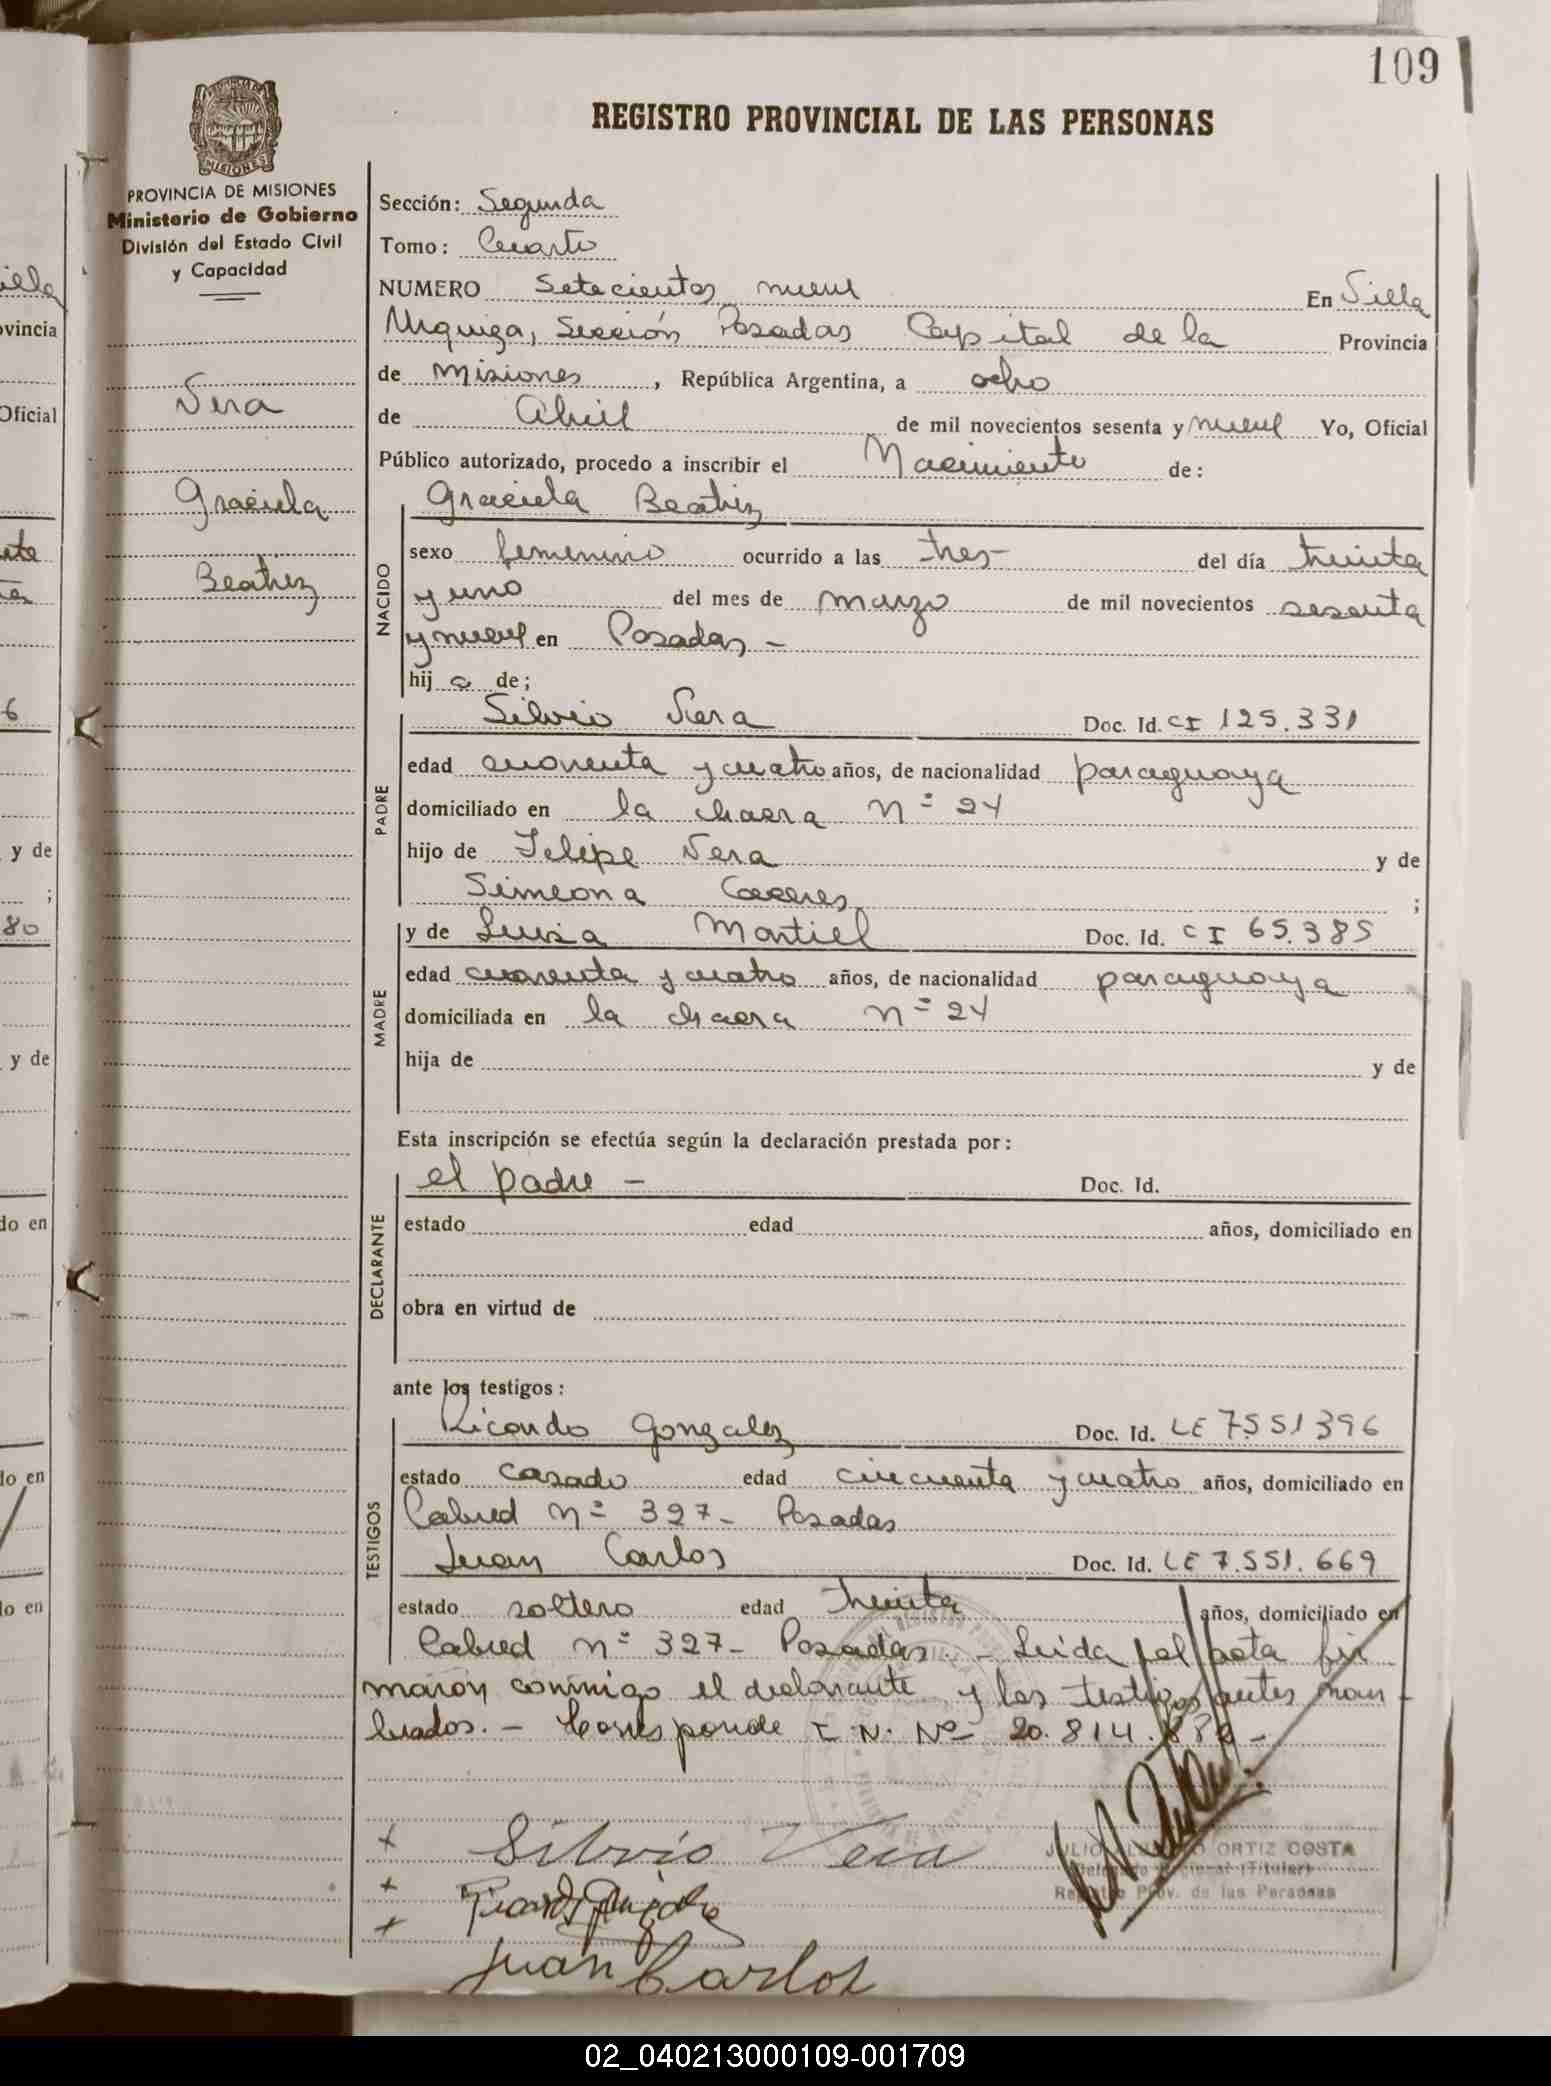 109
REGISTRO PROVINCIAL DE LAS PERSONAS
MISIONES
PROVINCIA DE MISIONES
Ministerio de Gobierno
División del Estado Civil
y Capacidad
Vera
Graciela
Beatriz
Sección: Segunda
Tomo: Cuarto
NUMERO Setecientos nueve En Villa
Urquiza, Sección Posadas Capital de la Provincia
de Misiones, República Argentina, a ocho
de Abril de mil novecientos sesenta y nueve Yo, Oficial
Público autorizado, procedo a inscribir el Nacimiento de:
Graciela Beatriz
NACIDO
sexo femenino ocurrido a las tres- del día treinta
y uno del mes de marzo de mil novecientos sesenta
y nueve en Posadas -
hij a de;
PADRE
Silvio Vera Doc. Id. CI 125.331
edad cuarenta y cuatro años, de nacionalidad paraguaya
domiciliado en la chacra n= 24
hijo de Felipe Vera y de
Simeona Caceres ;
MADRE
y de Luisa Montiel Doc. Id. CI 65.385
edad cuarenta y cuatro años, de nacionalidad paraguaya
domiciliada en la chacra n= 24
hija de y de
Esta inscripción se efectúa según la declaración prestada por:
DECLARANTE
el padre - Doc. Id.
estado edad años, domiciliado en
obra en virtud de
ante los testigos:
TESTIGOS
Ricardo Gonzalez Doc. Id. LE 7.551396
estado casado edad cincuenta y cuatro años, domiciliado en
Cabred n= 327- Posadas
Juan Carlos Doc. Id. LE 7.551.669
estado soltero edad treinta años, domiciliado en
Cabred n= 327- Posadas.- Leida el acta fir
maron conmigo el declarante y los testigos antes nom-
brados.- Corresponde I.N. Nº 20.814.
Silvio Vera
Ricardo Gonzalez
Juan Carlos
JULIO ORTIZ COSTA
Delegado Regional (Titular)
Registro Prov. de las Personas
02_040213000109-001709